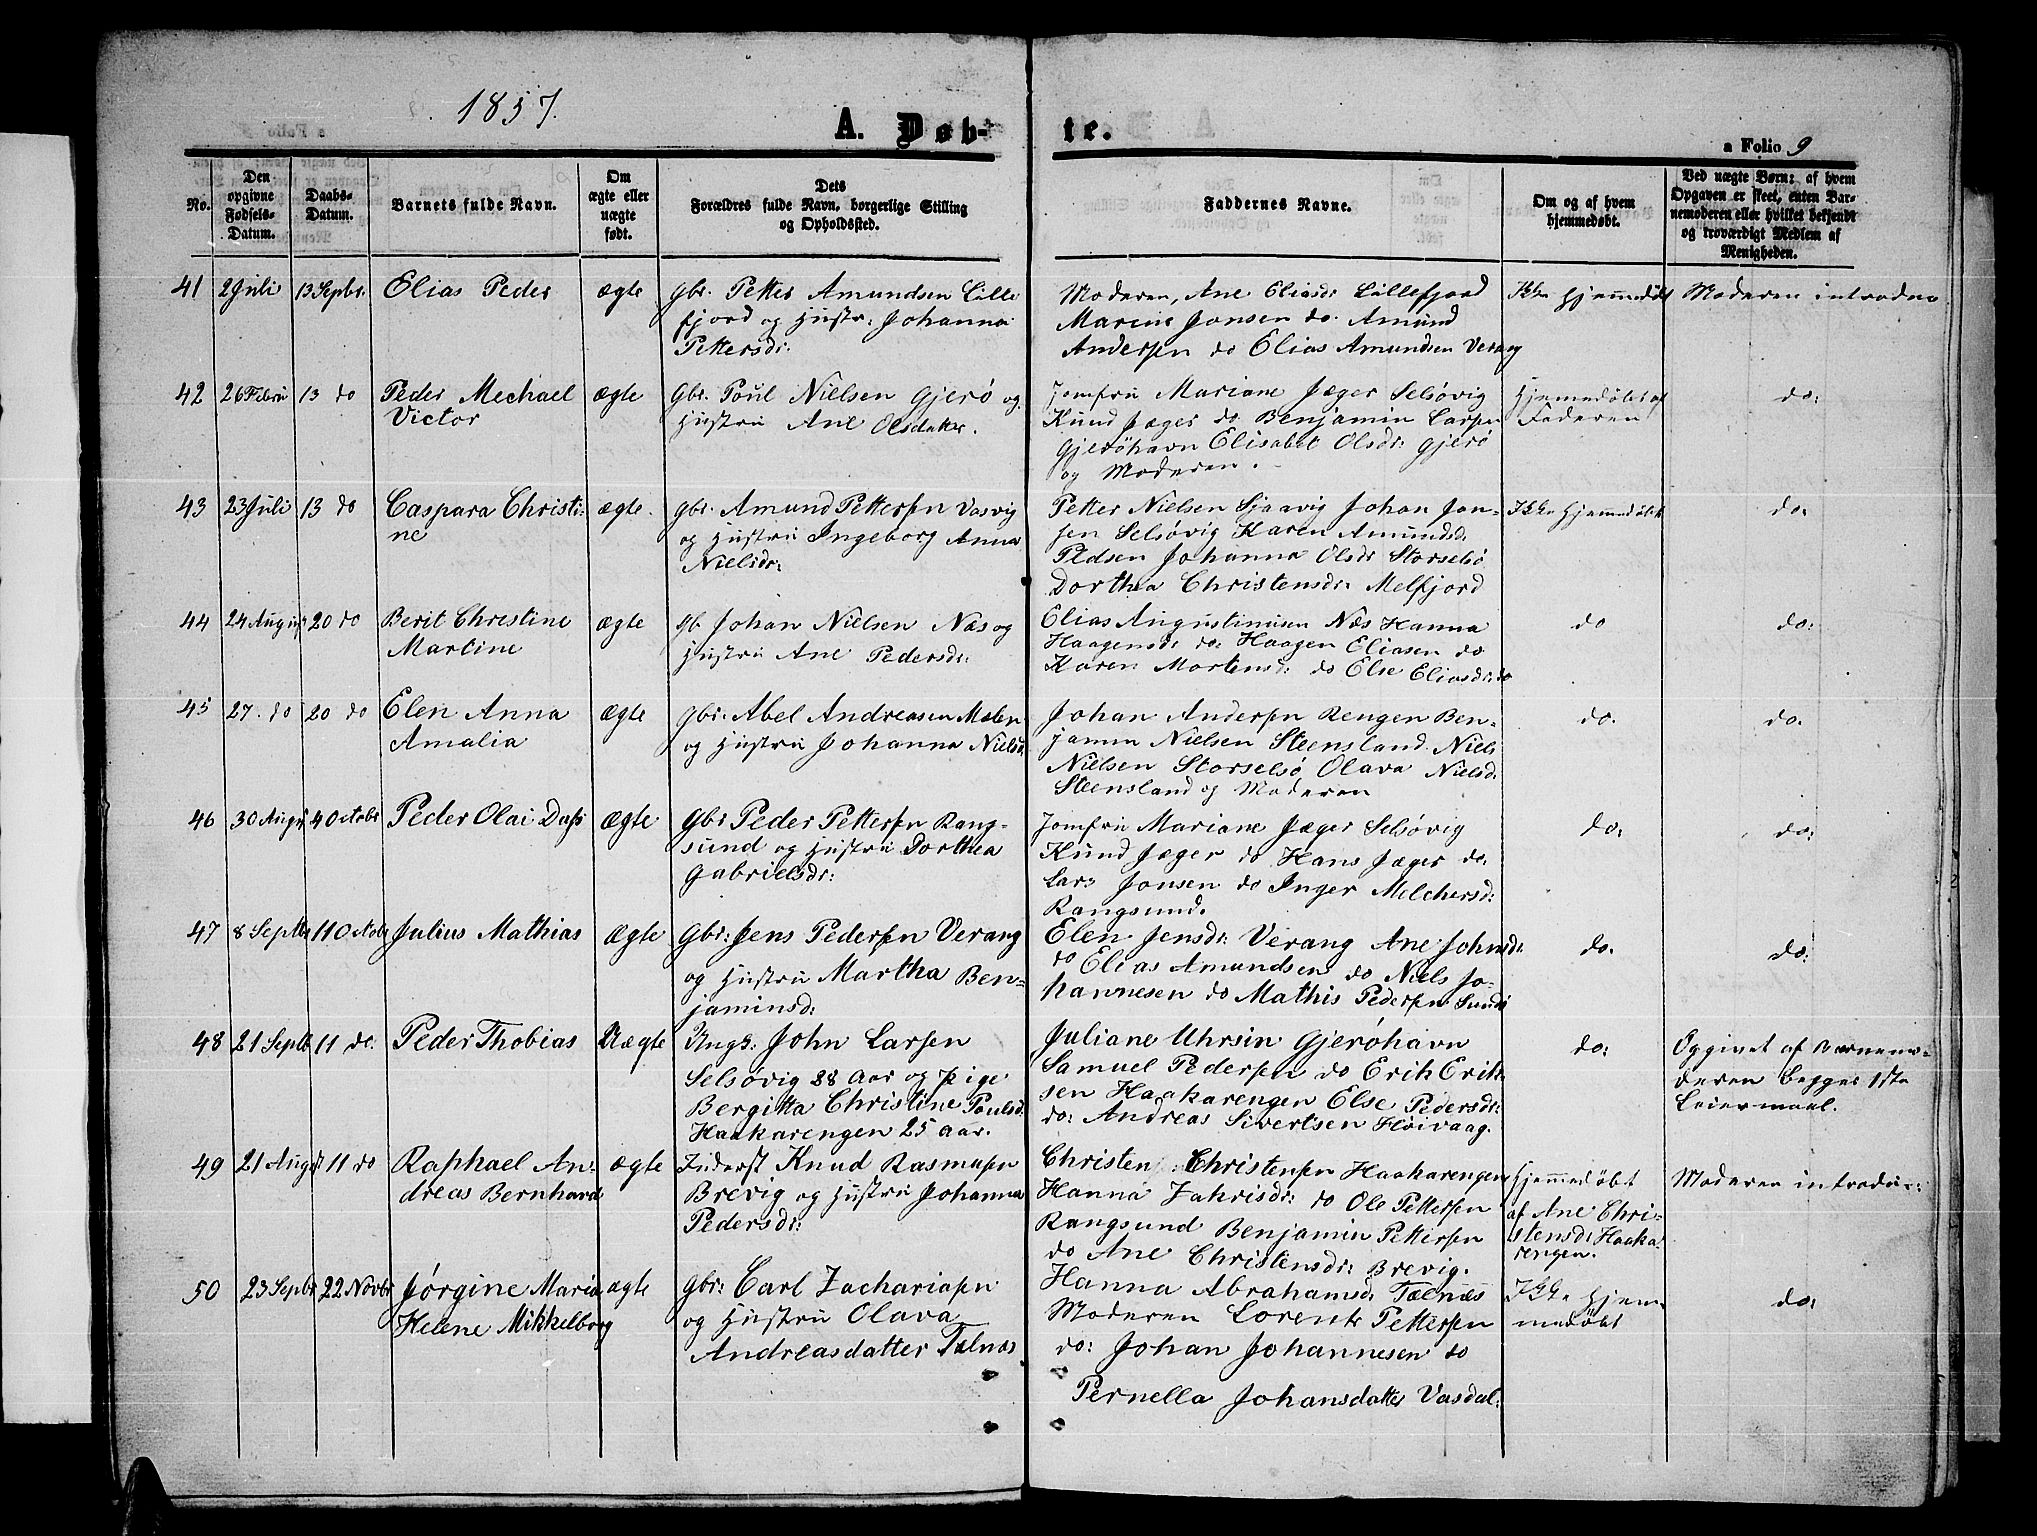 1857.
A. Døb-
te.
a Folio 9
No.
Den
opgivne
Fødsels-
Datum.
Daabs-
Datum.
Barnets fulde Navn.
Om
ægte eller
uægte
født.
Dets
Forældres fulde Navn, borgerlige Stilling
og Opholdssted.
Faddernes Navne.
Om og af hvem
hjemmedøbt.
Ved uægte Børn: af hvem
Opgaven er skeet, enten Bar-
nemoderen eller hvilket bekjendt
og troværdigt Medlem af
Menigheden.
41 2 Juli 13 Sepbr. Elias Peder ægte Gbr. Petter Amundsen Lille
fjord og Hustr: Johanna
Pettersdr.
Moderen, Ane Eliasdr Lillefjord
Marine Jonsen do. Amund
Andersen do Elias Amundsen Verang
Ikke Hjemmedøbt
Moderen introdu
42 26 Febru 13 do Peder Mechael
Victor
ægte Gbr. Poul Nielsen Gjerø og
Hustru Ane Olsdatter.
Jomfru Mariane Jæger Selsøvig
Knud Jæger do. Benjamin Larsen
Gjerøhavn Elisabet Olsdr: Gjerø
og Moderen.
Hjemmedøbt af
Faderen
do:
43 23 Juli 13 do Caspara Christi:
ne
ægte. Gbr. Amund Pettersen Vasvig
og Hustru Ingeborg Anna
Nielsdr:
Petter Nielsen Sjaavig Johan Jon-
sen Selsøvig Karen Amundsd.
Pedsen Johanna Olsdr Storselsø
Dorthea Christensdr: Melfjord
Ikke Hjemmedøbt
do.
44 24 August 20 do Berit Christine
Martine
ægte Gb Johan Nielsen Næs og
Hustru Ane Pedersdr:
Elias Augustinusen Næs Hanna
Haagensdr do: Haagen Eliasen do
Karen Mortensdr: do Else Eliasdr: do
do
do:
45 27. do 20 do Elen Anna
Amalia
ægte Gbr: Abel Andreasen Melen
og Hustru Johanna Nielsd.
Johan Andersen Rengen Ben-
jamin Nielsen Steensland. Niels
Nielsen Storselsø Olava Nielsd:
Steensland og Moderen
do.
do.
46 30 Augst 4 Octobr Peder Olai Dass ægte Gbr Peder Pettersen Rang-
sund og Hustru Dorthea
Gabrielsdr:
Jomfru Mariane Jæger Selsøvig
Knud Jæger do Hans Jæger do.
Lars Jonsen do Inger Melchersd:
Rangsund.
do:
do:
47 8 Septbr 11 Octobr Julius Mathias ægte Gbr: Jens Pedersen Verang
og Hustru Martha Ben-
jaminsd:
Elen Jensdr: Verang Ane Johnsdr:
do Elias Amundsen do Niels Jo-
hannesen do Mathis Pedersen Sundø
do.
do:
48 21 Septb. 11 do. Peder Thobias Uægte Ungk: John Larsen
Selsøvig 28 Aar og Pige
Bergitta Christine Poulsd.
Haakarengen 25 aar.
Juliane Uhrsin Gjerøhavn
Samuel Pedersen do Erik Erik-
sen Haakarengen Else Pedersdr:
do: Andreas Sivertsen Høivaag.
do:
Opgivet af Barnemo-
deren begges 1ste
Leiermaal.
49 21 August 11 do Raphael An:
dreas Bernhard
ægte Inderst Knud Rasmusen
Brevig og Hustru Johanna
Pedersdr:
Christen Christensen Haakarengen
Hanna Zakrisdr: do Ole Pettersen
Rangsund Benjamin Pettersen
do Ane Christensdr: Brevig.
Hjemmedøbt
af Ane Chri-
stensd: Haaka-
rengen.
Moderen introdu:
50 23 Sepbr 22 Novbr Jørgine Maria
Helene Mikkelborg
ægte Gbr: Carl Zachariasen
og Hustru Olava
Andreasdatter Telnæs
Hanna Abrahamsd. Telnæs
Moderen Lorents Pettersen
do: Johan Johannesen do
Pernella Johansdatter Vasdal:
Ikke Hjem-
medøbt
do: